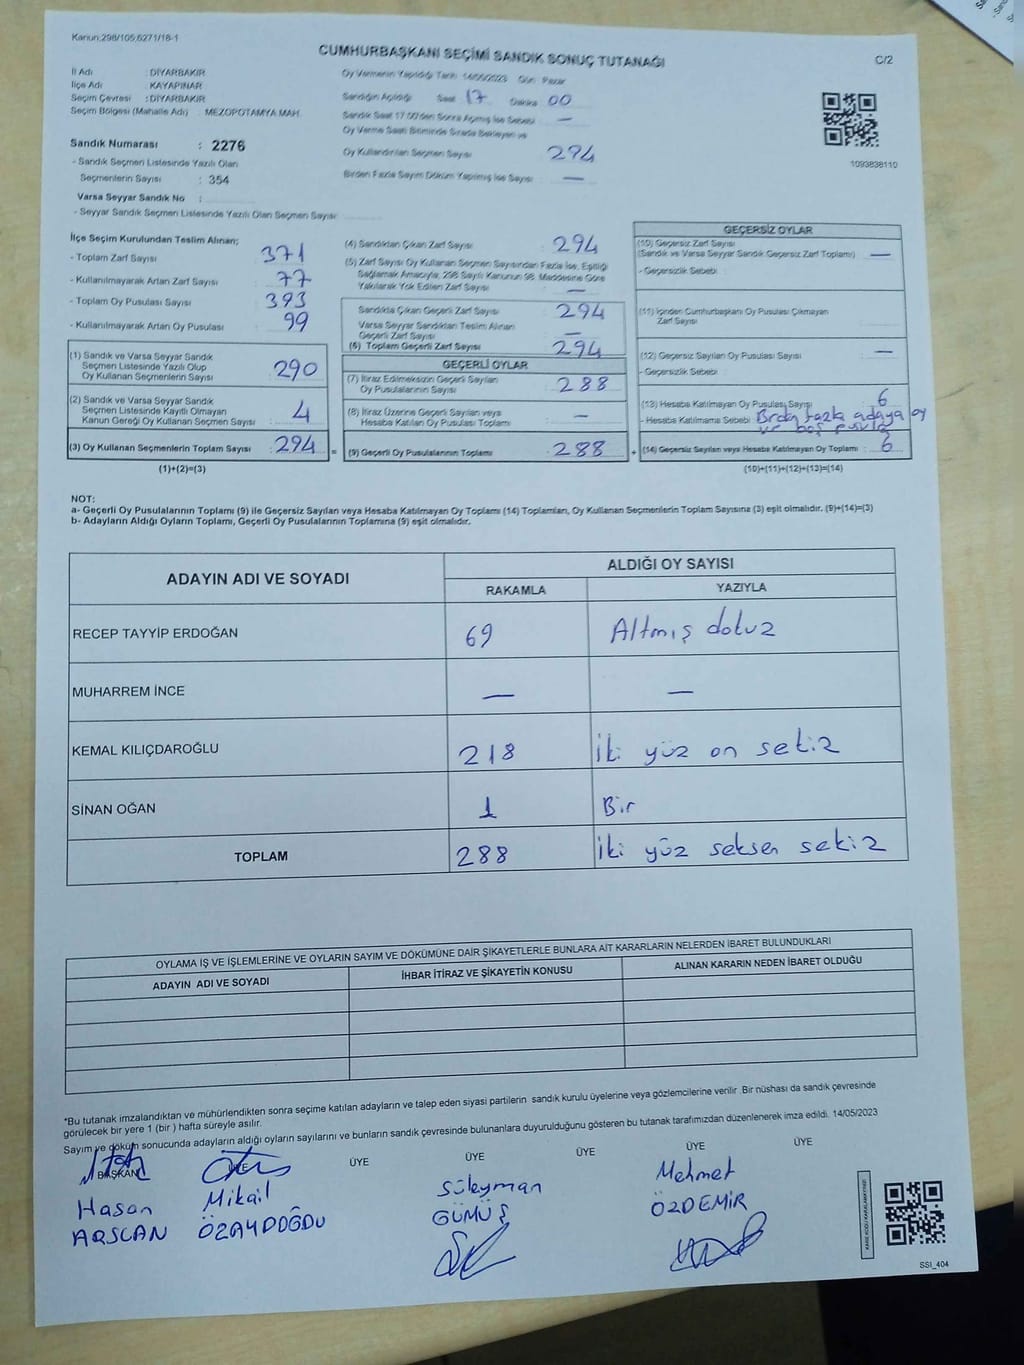 Kanun:298/105,6271/18-1
CUMHURBAŞKANI SEÇİMİ SANDIK SONUÇ TUTANAĞI
C/2
İl Adı : DİYARBAKIR
İlçe Adı : KAYAPINAR
Seçim Çevresi : DİYARBAKIR
Seçim Bölgesi (Mahalle Adı) : MEZOPOTAMYA MAH.
Sandık Numarası : 2276
- Sandık Seçmen Listesinde Yazılı Olan
Seçmenlerin Sayısı : 354
Varsa Seyyar Sandık No :
- Seyyar Sandık Seçmen Listesinde Yazılı Olan Seçmen Sayısı
Oy Vermenin Yapıldığı Tarih 14/05/2023 Gün : Pazar
Sandığın Açıldığı Saat 17 Dakika 00
Sandık Saat 17.00'den Sonra Açılmış İse Sebebi —
Oy Verme Saati Bitiminde Sırada Bekleyen ve
Oy Kullandırılan Seçmen Sayısı 294
Birden Fazla Sayım Döküm Yapılmış İse Sayısı —
1093838110
İlçe Seçim Kurulundan Teslim Alınan;
- Toplam Zarf Sayısı 371
- Kullanılmayarak Artan Zarf Sayısı 77
- Toplam Oy Pusulası Sayısı 393
- Kullanılmayarak Artan Oy Pusulası 99
(1) Sandık ve Varsa Seyyar Sandık
Seçmen Listesinde Yazılı Olup
Oy Kullanan Seçmenlerin Sayısı 290
(2) Sandık ve Varsa Seyyar Sandık
Seçmen Listesinde Kayıtlı Olmayan
Kanun Gereği Oy Kullanan Seçmen Sayısı 4
(3) Oy Kullanan Seçmenlerin Toplam Sayısı 294 =
(1)+(2)=(3)
(4) Sandıktan Çıkan Zarf Sayısı 294
(5) Zarf Sayısı Oy Kullanan Seçmen Sayısından Fazla İse, Eşitliği
Sağlamak Amacıyla, 298 Sayılı Kanunun 98. Maddesine Göre
Yakılarak Yok Edilen Zarf Sayısı —
Sandıkta Çıkan Geçerli Zarf Sayısı 294
Varsa Seyyar Sandıktan Teslim Alınan
Geçerli Zarf Sayısı —
(6) Toplam Geçerli Zarf Sayısı 294
GEÇERLİ OYLAR
(7) İtiraz Edilmeksizin Geçerli Sayılan
Oy Pusulalarının Sayısı 288
(8) İtiraz Üzerine Geçerli Sayılan veya
Hesaba Katılan Oy Pusulası Toplamı —
(9) Geçerli Oy Pusulalarının Toplamı 288 +
GEÇERSİZ OYLAR
(10) Geçersiz Zarf Sayısı
(Sandık ve Varsa Seyyar Sandık Geçersiz Zarf Toplamı) —
- Geçersizlik Sebebi :
(11) İçinden Cumhurbaşkanı Oy Pusulası Çıkmayan
Zarf Sayısı
(12) Geçersiz Sayılan Oy Pusulası Sayısı —
- Geçersizlik Sebebi :
(13) Hesaba Katılmayan Oy Pusulası Sayısı 6
- Hesaba Katılmama Sebebi : Birden fazla adaya oy
ve boş pusula
(14) Geçersiz Sayılan veya Hesaba Katılmayan Oy Toplamı : 6
(10)+(11)+(12)+(13)=(14)
NOT:
a- Geçerli Oy Pusulalarının Toplamı (9) ile Geçersiz Sayılan veya Hesaba Katılmayan Oy Toplamı (14) Toplamları, Oy Kullanan Seçmenlerin Toplam Sayısına (3) eşit olmalıdır. (9)+(14)=(3)
b- Adayların Aldığı Oyların Toplamı, Geçerli Oy Pusulalarının Toplamına (9) eşit olmalıdır.
ADAYIN ADI VE SOYADI
ALDIĞI OY SAYISI
RAKAMLA YAZIYLA
RECEP TAYYİP ERDOĞAN 69 Altmış dokuz
MUHARREM İNCE — —
KEMAL KILIÇDAROĞLU 218 İki yüz on sekiz
SİNAN OĞAN 1 Bir
TOPLAM 288 İki yüz seksen sekiz
OYLAMA İŞ VE İŞLEMLERİNE VE OYLARIN SAYIM VE DÖKÜMÜNE DAİR ŞİKAYETLERLE BUNLARA AİT KARARLARIN NELERDEN İBARET BULUNDUKLARI
ADAYIN ADI VE SOYADI İHBAR İTİRAZ VE ŞİKAYETİN KONUSU ALINAN KARARIN NEDEN İBARET OLDUĞU
*Bu tutanak imzalandıktan ve mühürlendikten sonra seçime katılan adayların ve talep eden siyasi partilerin sandık kurulu üyelerine veya gözlemcilerine verilir .Bir nüshası da sandık çevresinde
görülecek bir yere 1 (bir ) hafta süreyle asılır.
Sayım ve döküm sonucunda adayların aldığı oyların sayılarını ve bunların sandık çevresinde bulunanlara duyurulduğunu gösteren bu tutanak tarafımızdan düzenlenerek imza edildi. 14/05/2023
BAŞKAN ÜYE ÜYE ÜYE ÜYE ÜYE ÜYE
Hasan Mikail Süleyman Mehmet
ARSLAN ÖZAYDOĞDU GÜMÜŞ ÖZDEMİR
SSI_404